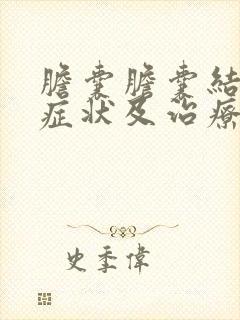 膽囊膽囊結
症狀及治療
史季偉